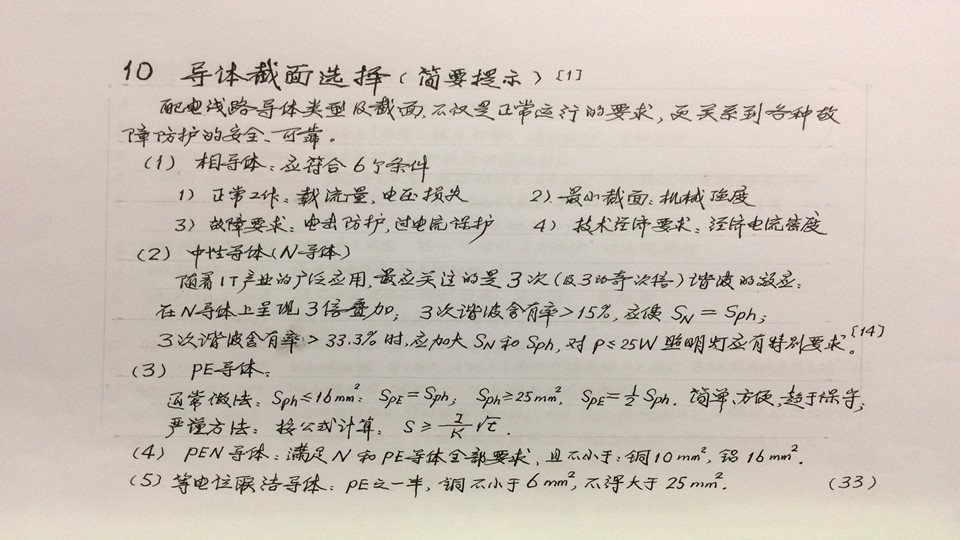 10 导体截面选择(简要提示)[1]
配电线路导体类型及截面,不仅是正常运行的要求,更关系到各种故
障防护的安全、可靠。
(1) 相导体:应符合6个条件
1) 正常工作:载流量,电压损失 2) 最小截面:机械强度
3) 故障要求:电击防护,过电流保护 4) 技术经济要求:经济电流密度
(2) 中性导体(N导体)
随着IT产业的广泛应用,最应关注的是3次(及3的奇次倍)谐波的效应:
在N导体上呈现3倍叠加;3次谐波含有率>15%,应使 SN = Sph;
3次谐波含有率>33.3%时,应加大SN和Sph,对P≤25W照明灯应有特别要求。[14]
(3) PE导体:
通常做法:Sph≤16mm²: SPE=Sph; Sph≥25mm², SPE=½Sph. 简单、方便,趋于保守;
严谨方法:按公式计算: S ≥ I/K √t.
(4) PEN导体:满足N和PE导体全部要求,且不小于:铜10mm²,铝16mm².
(5) 等电位联结导体:PE之一半,铜不小于6mm²,不得大于25mm². (33)